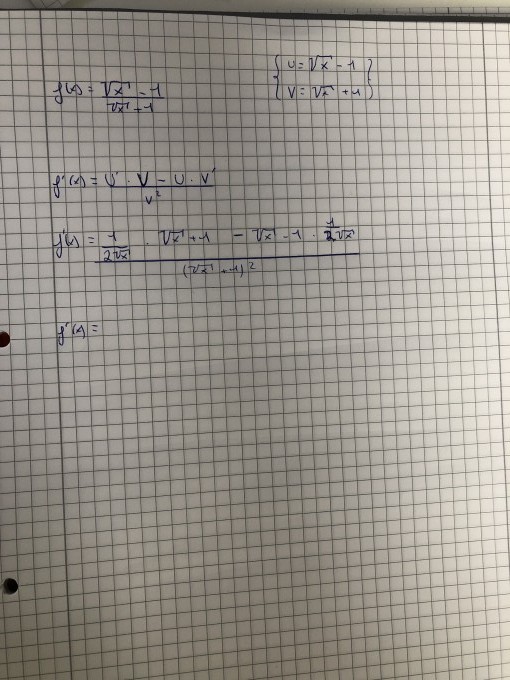 f(x) = (√x - 1) / (√x + 1)
{ U = √x - 1 }
{ V = √x + 1 }
f'(x) = (U' · V - U · V') / V²
f'(x) = (1/(2√x) · √x + 1 - √x - 1 · 1/(2√x)) / (√x + 1)²
f'(x) =